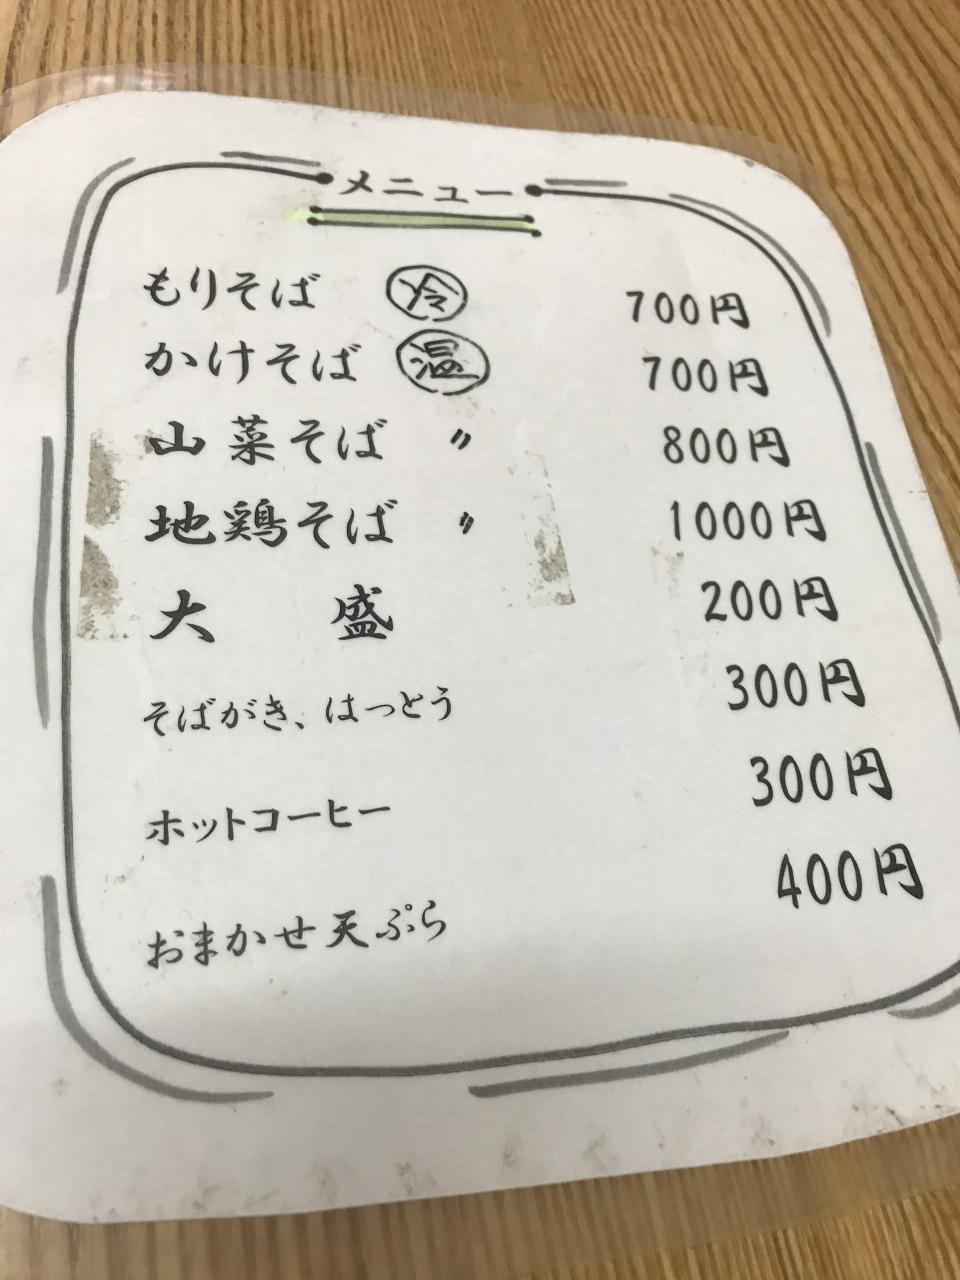 メニュー
もりそば 冷 700円
かけそば 温 700円
山菜そば 〃 800円
地鶏そば 〃 1000円
大 盛 200円
そばがき、はっとう 300円
ホットコーヒー 300円
おまかせ天ぷら 400円